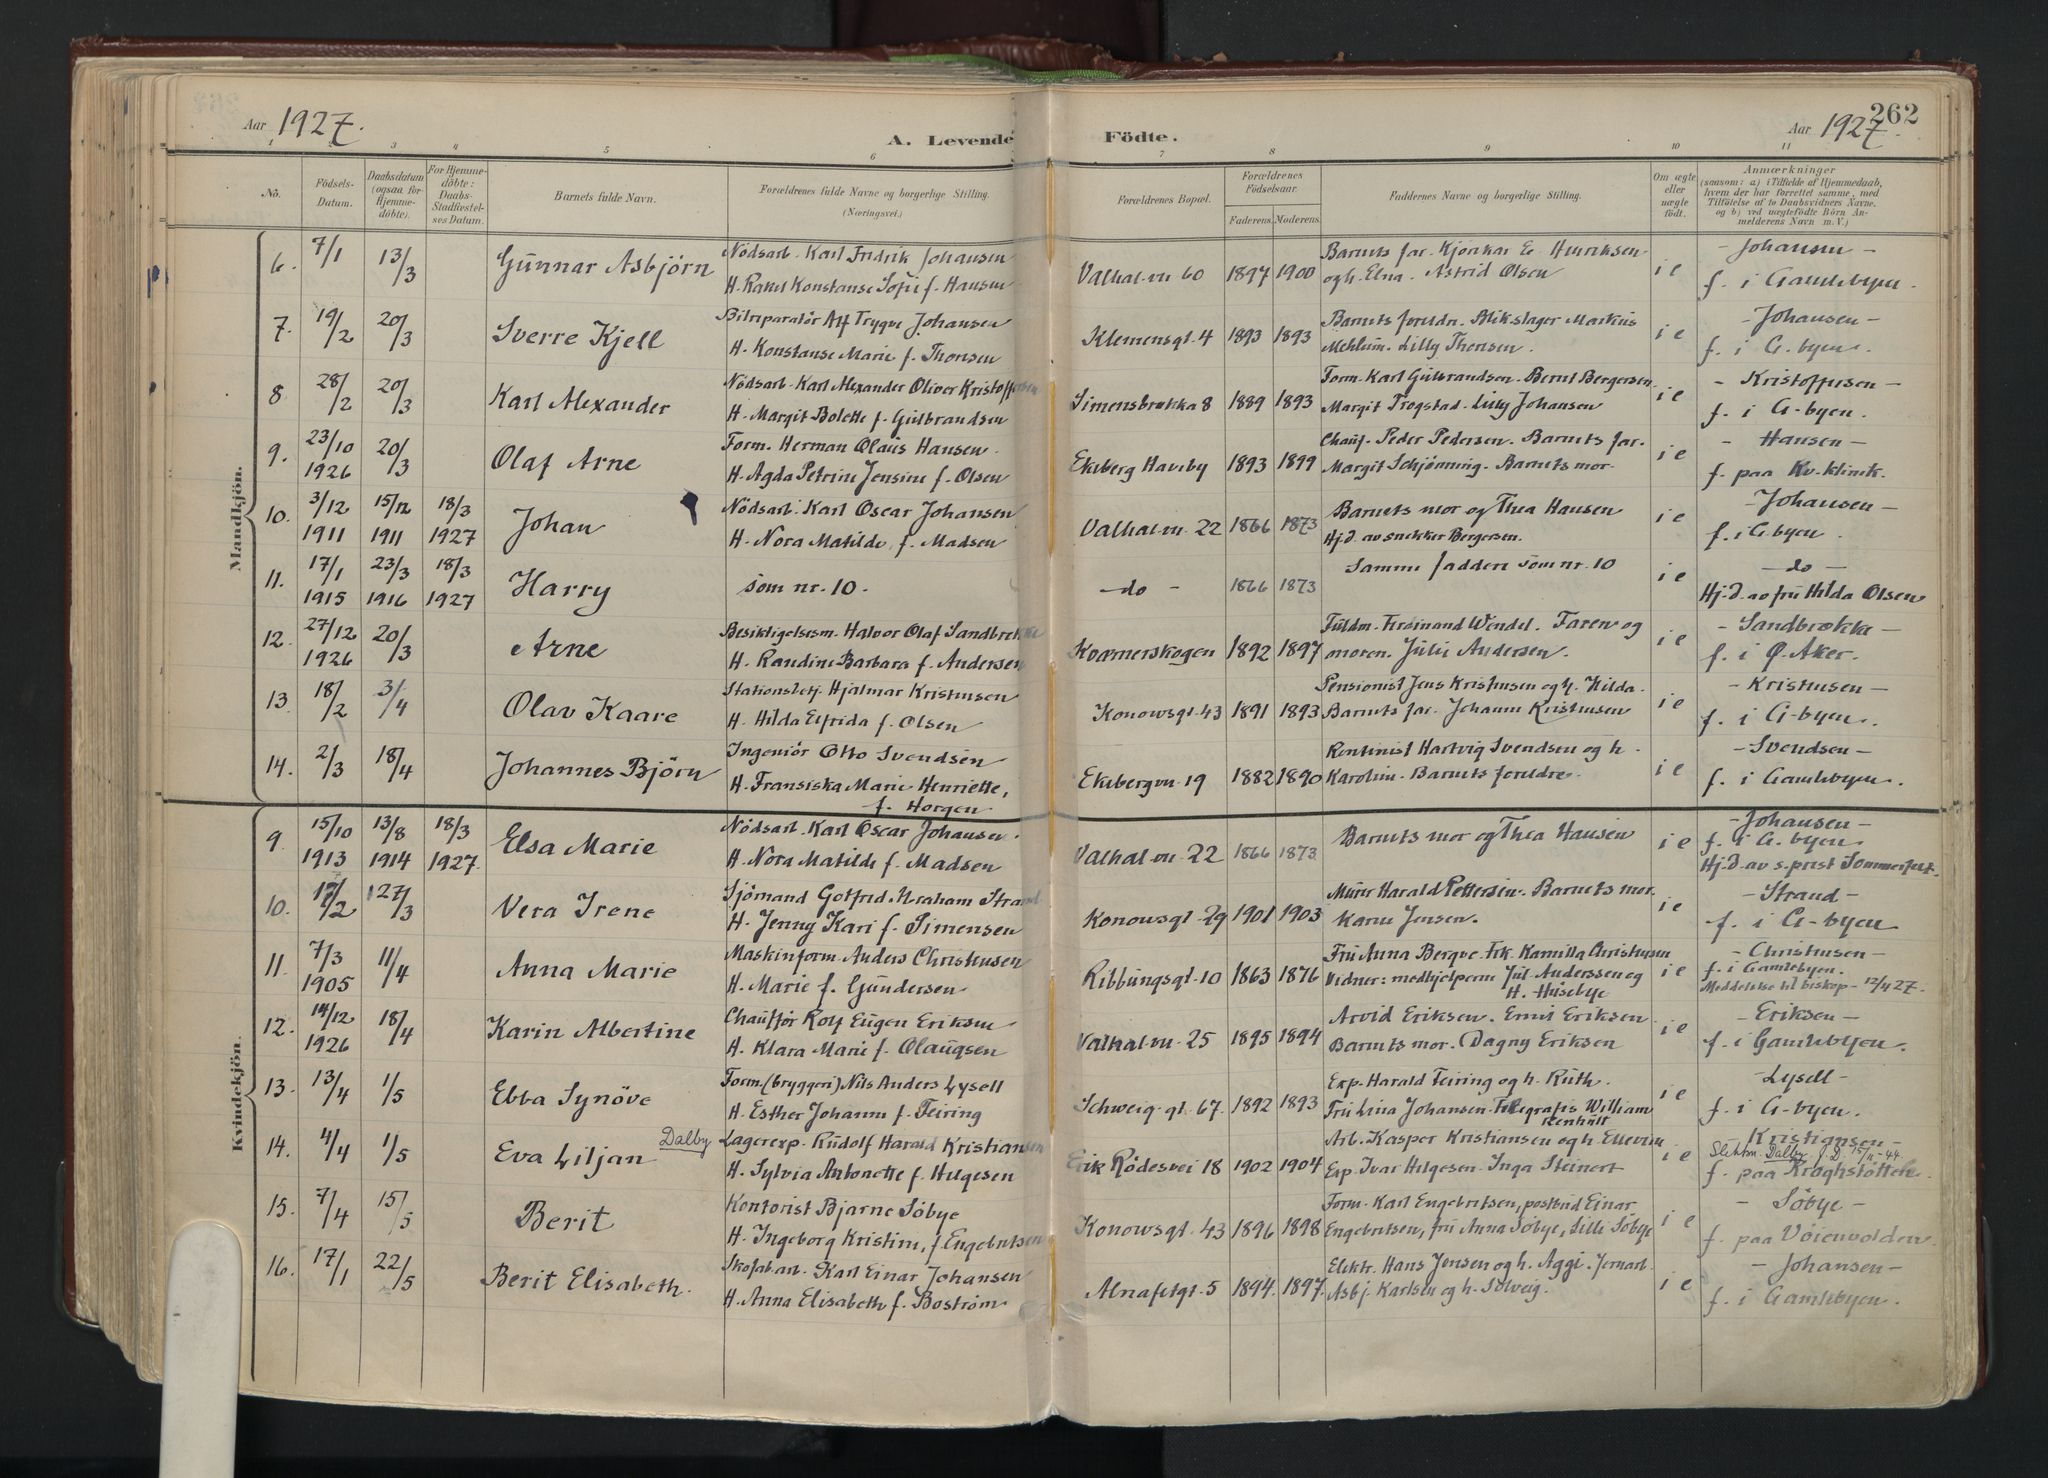 262
Aar 1927.
A. Levende Födte.
Aar 1927.
1 3 4 5 6 7 8 9 10 11
Nö.
Födsels-Datum.
Daabsdatum (ogsaa for Hjemme-döbte).
For Hjemme-döbte: Daabs-Stadfestel-ses Datum.
Barnets fulde Navn.
Forældrenes fulde Navne og borgerlige Stilling. (Næringsvei.)
Forældrenes Bopæl.
Forældrenes Födselsaar.
Faderens. Moderens.
Faddernes Navne og borgerlige Stilling.
Om ægte eller uægte födt.
Anmærkninger
(saasom: a) i Tilfælde af Hjemmedaab, hvem der har forrettet samme, med Tilföielse af to Daabsvidners Navne, og b) ved uægtefödte Börn An-melderens Navn m. V.)
Mandkjön.
6. 7/1 13/3 Gunnar Asbjörn Nödsarb. Karl Fridrik Johansen Valhal.vn 60 1897 1900 Barnets far. Kjörekar E. Henriksen i e - Johansen -
H. Rakel Konstanse Sofie f. Hansen og h. Elna. Astrid Olsen f. i Gamlebyen.
7. 19/2 20/3 Sverre Kjell Bilreparatör Alf Trygve Johansen Klemensgt. 4 1893 1893 Barnets foreldre. Blikslager Markus i e - Johansen -
H. Konstanse Marie f. Thonsen Mehlum. Lilly Thonsen. f. i G.byen.
8 28/2 20/3 Karl Alexander Nödsarb. Karl Alexander Oliver Kristoffersen Simensbrekka 8 1889 1893 Form. Karl Gulbrandsen. Bernt Bergersen. i e - Kristoffersen -
H. Margit Bolette f. Gulbrandsen Margit Trogstad. Lilly Johansen f. i G-byen.
9. 23/10 1926 20/3 Olaf Arne Form. Herman Olaus Hansen. Ekeberg Haveby 1893 1899 Chauf. Peder Pedersen. Barnets far. i e - Hansen -
H. Agda Petrine Jensine f. Olsen Margit Schjönning. Barnets mor. f. paa Kv. klinik.
10. 3/12 1911 15/12 1911 18/3 1927 Johan Nödsarb. Karl Oscar Johansen Valhal.vn. 22 1866 1873 Barnets mor og Thea Hansen i e - Johansen -
H. Nora Matilde f. Madsen Hj.d. av snekker Bergersen. f. i G.byen
11. 17/1 1915 23/3 1916 18/3 1927 Harry som nr. 10. - do - 1866 1873 Samme faddere som nr. 10 i e - do -
Hj. d. av fru Hilda Olsen
12. 27/12 1926 20/3 Arne Besiktigelsesm. Halvor Olaf Sandbrekke Kværnerskogen 1892 1897 Fuldm. Ferdinand Wendel. Faren og i e - Sandbrække -
H. Randine Barbara f. Andersen moren. Julie Andersen. f. i Ø. Aker.
13. 18/2 3/4 Olav Kaare Stationsbetj. Hjalmar Kristensen Konowsgt. 43 1891 1893 Pensionist Jens Kristensen og h. Hilda. i e - Kristensen -
H. Hilda Elfrida f. Olsen Barnets far. Johanne Kristensen f. i G-byen.
14. 2/3 18/4 Johannes Björn Ingeniör Otto Svendsen Ekebergvn 19 1882 1890 Rentenist Hartvig Svendsen og h. i e - Svendsen -
H. Fransiska Marie Henriette, f. Horgen Karoline. Barnets foreldre. f. i Gamlebyen.
Kvindekjön.
9. 15/10 1913 13/8 1914 18/3 1927. Elsa Marie Nödsarb. Karl Oscar Johansen. Valhal.vn. 22 1866 1873 Barnets mor og Thea Hansen i e - Johansen -
H. Nora Matilde f. Madsen f. i G. byen
Hj.D. av s.prest Sommerfelt.
10. 17/2 27/3 Vera Irene Sjömand Gotfred Abraham Strand Konowsgt. 29 1901 1903 Murer Harald Pettersen. Barnets mor. i e - Strand -
H. Jenny Kari f. Simensen Karen Jensen. f. i G-byen
11. 7/3 1905 11/4 Anna Marie Maskinform. Anders Christensen Ribbungsgt. 10 1863 1876 Fru Anna Bergve. Frk. Kamilla Christensen i e - Christensen -
H. Marie f. Gundersen Vidner: medhjelperne Jul. Anderssen og H. Huseby f. i Gamlebyen.
Meddelelse til biskop - 12/4 27.
12. 14/12 1926 18/4 Karin Albertine Chaufför Rolf Eugen Eriksen Valhal.vn. 25 1895 1894 Arvid Eriksen. Ernst Eriksen. i e - Eriksen -
H. Klara Marie f. Olaugsen Barnets mor. Dagny Eriksen f. i Gamlebyen.
13. 13/4 1/5 Ebba Synöve Form. (bryggeri) Nils Anders Lysell Schweig.gt. 67. 1892 1893 Exp. Harald Feiring og h. Ruth. i e - Lysell -
H. Esther Johanne f. Feiring Fru Lina Johansen. Telegrafis William Renhult f. i G-byen.
14. 4/4 1/5 Eva Liljan Dalby Lagerexp. Rudolf Harald Kristiansen Erik Rödesvei 18 1902 1904 Arb. Kasper Kristiansen og h. Ellevine i e Kristiansen -
H. Sylvia Antonette f. Helgesen Exp. Ivar Helgesen. Inga Steinert Slektsn. Dalby. J.D. 15/11-44
f. paa Kroghstötten.
15. 7/4 15/5 Berit Kontorist Bjarne Söbye Konowsgt. 43 1896 1898 Form. Karl Engebretsen, postbud Einar i e - Söbye -
H. Ingeborg Kristine, f. Engebretsen Engebretsen, fru Anna Söbye, Lilli Söbye f. paa Vöienvolden.
16. 17/1 22/5 Berit Elisabeth. Skofab.arb. Karl Einar Johansen Alnafetgt. 5 1894. 1897. Elektr. Hans Jensen og h. Aggi. Jernarb. i e - Johansen -
H. Anna Elisabeth f. Boström Asbj. Karlsen og h. Solveig. f. i Gamlebyen.